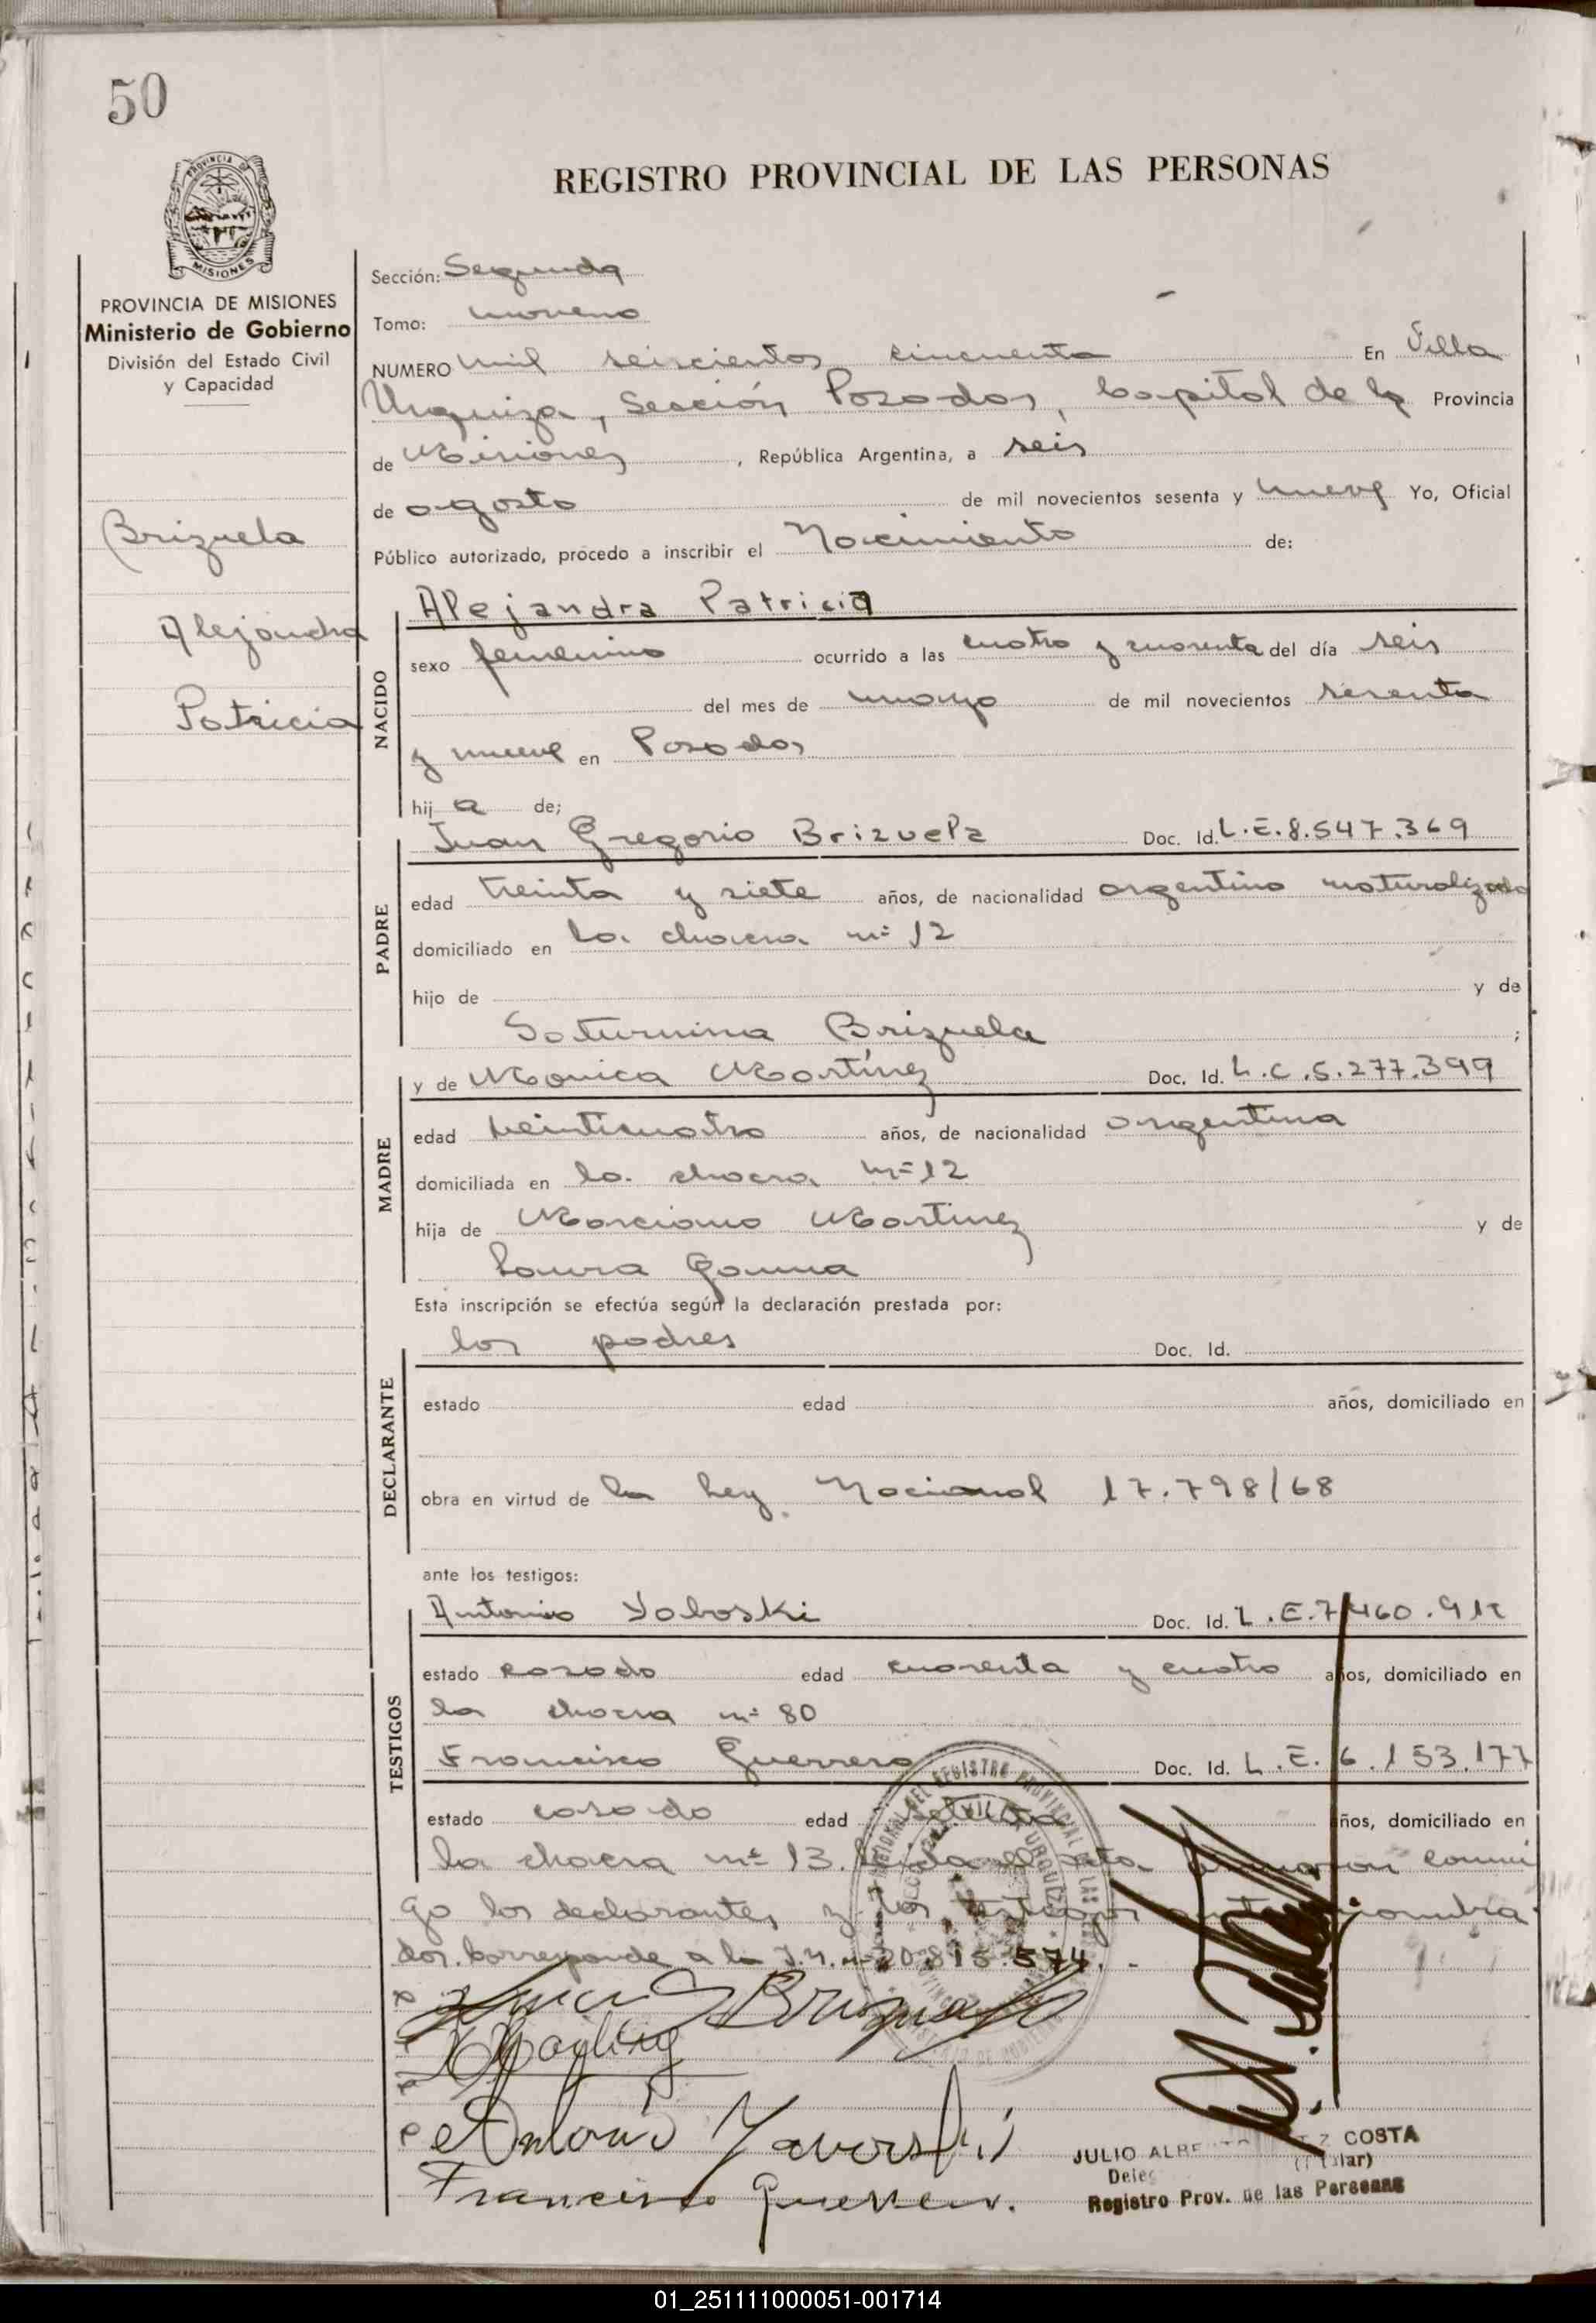 50
REGISTRO PROVINCIAL DE LAS PERSONAS
PROVINCIA DE MISIONES
Ministerio de Gobierno
División del Estado Civil
y Capacidad
Brizuela
Alejandra
Patricia
Sección: Segunda
Tomo: noveno
NUMERO mil seiscientos cincuenta En Villa
Urquiza, Sección Posadas, Capital de la Provincia
de Misiones, República Argentina, a seis
de agosto de mil novecientos sesenta y nueve Yo, Oficial
Público autorizado, procedo a inscribir el Nacimiento de:
NACIDO
Alejandra Patricia
sexo femenino ocurrido a las cuatro y cuarenta del día seis
del mes de mayo de mil novecientos sesenta
y nueve en Posadas
hij a de;
PADRE
Juan Gregorio Brizuela Doc. Id. L.E. 8.547.369
edad treinta y siete años, de nacionalidad argentino naturalizado
domiciliado en la chacra nº 12
hijo de y de
Saturnina Brizuela ;
MADRE
y de Monica Martínez Doc. Id. L.C. 5.277.399
edad veinticuatro años, de nacionalidad argentina
domiciliada en la chacra nº 12
hija de Marciano Martinez y de
Laura
Esta inscripción se efectúa según la declaración prestada por:
DECLARANTE
los padres Doc. Id.
estado edad años, domiciliado en
obra en virtud de la Ley Nacional 17.798/68
ante los testigos:
TESTIGOS
Antonio Doc. Id. L.E. 7.460.
estado casado edad cuarenta y cuatro años, domiciliado en
la chacra nº 80
Francisco Guerrero Doc. Id. L.E. 6.153.177
estado casado edad setenta años, domiciliado en
la chacra nº 13. Leída el acta firmaron conmi
go los declarantes y los testigos antes nombra
dos. Corresponde a la nº 20.815.574.-
Brizuela
Antonio
Francisco Guerrero.
JULIO COSTA
(Titular)
Registro Prov. de las Personas
01_251111000051-001714